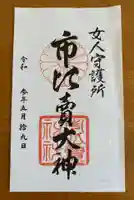 女人守護所
市比賣大神
令和
参年五月拾九日